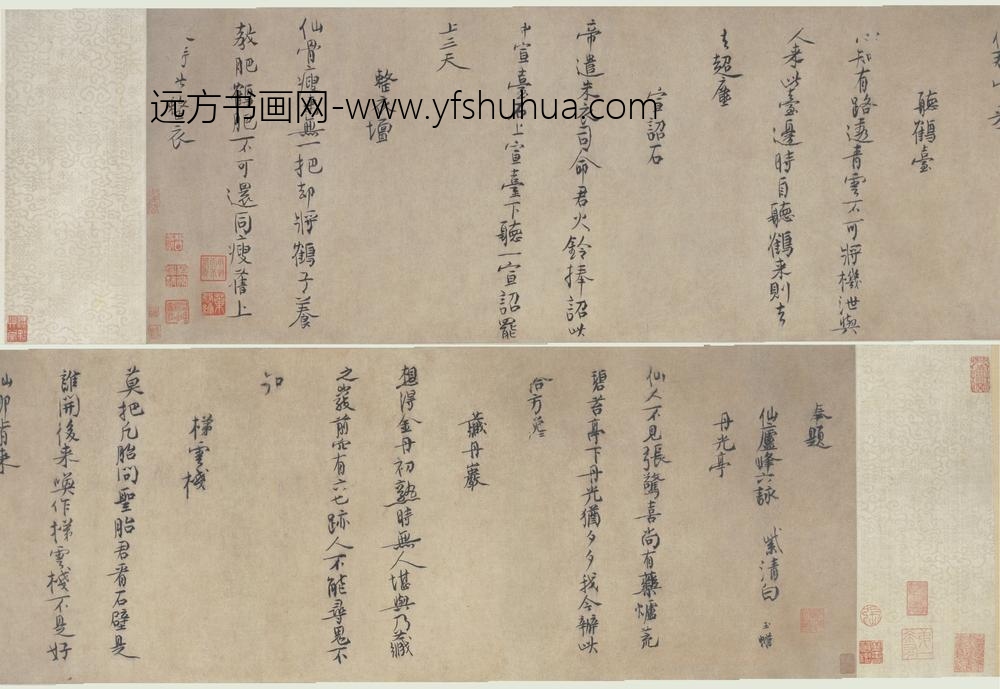 奉題
仙廬峰六詠 紫清白玉蟾
丹光亭
仙人不見張驚喜尚有藥爐荒
碧苔亭下丹光猶夕夕我今辦此
合方
藏丹巖
想得金丹初熟時無人堪與乃藏
之巖前穴有六七跡人不能尋鬼不
知
梯雲棧
莫把凡胎問聖胎君看石壁是
誰開後来喚作梯雲棧不是好
肯来
聽鶴臺
心知有路透青雲不可將機泄與
人来此臺邊時自聽鶴来則去
去超塵
宣詔石
帝遣朱衣司命君火鈴捧詔此
中宣臺上宣臺下聽一宣詔罷
上三天
整衣壇
仙骨瘦無一把却將鶴子養
教肥鶴肥不可還同瘦舊上
衣
远方书画网-www.yfshuhua.com